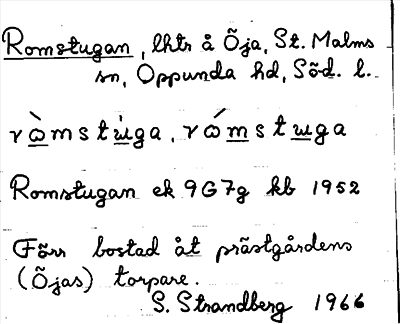 Romstugan, lhtr å Öja, St. Malms
sn, Oppunda hd, Söd. l.
ròmstùga, rómstuga
Romstugan ek 9G7g kb 1952
Förr bostad åt prästgårdens
(Öjas) torpare.
S. Strandberg 1966